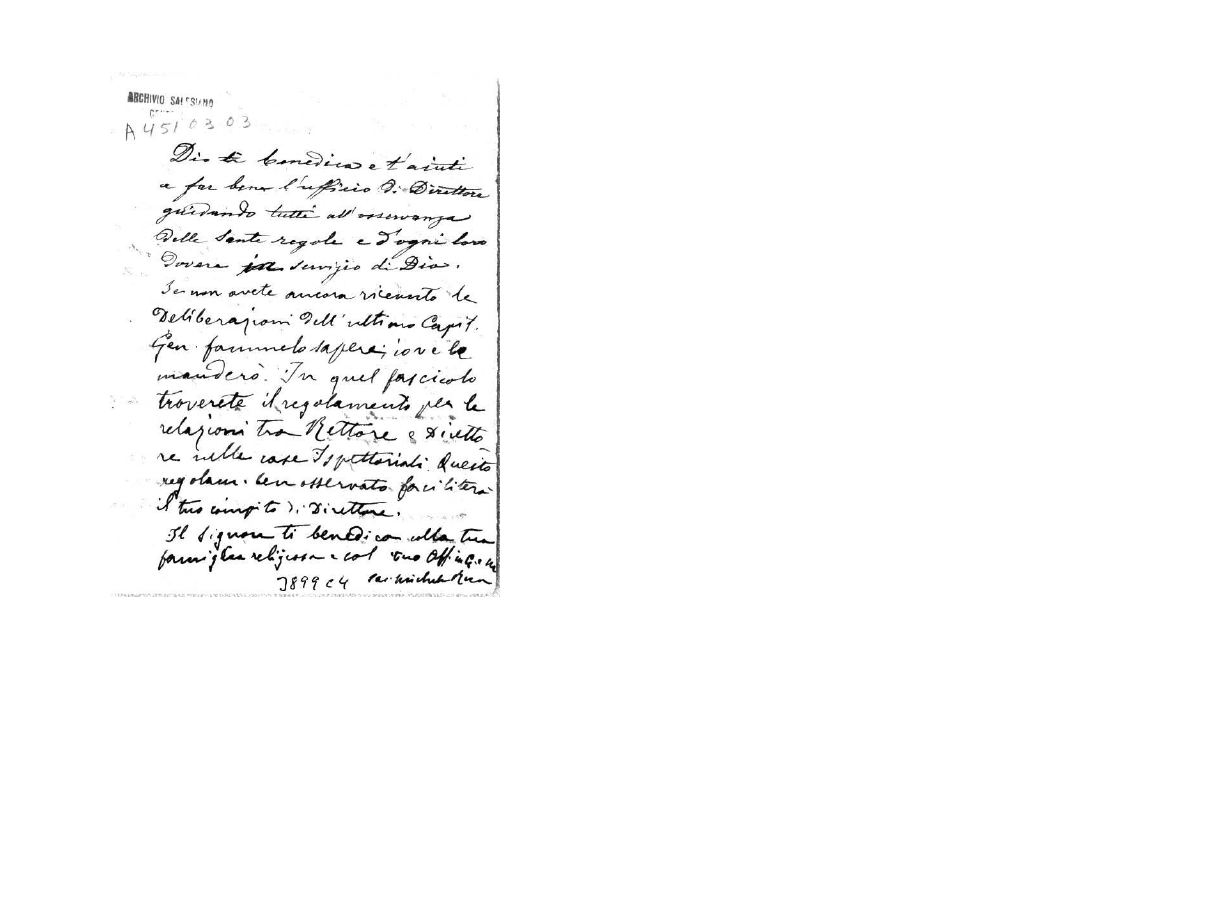 ARCHIVIO SALESIANO
A 451 03 03
Dio ti benedica e t'aiuti
a far bene l'ufficio di Direttore
guidando tutti all'osservanza
delle Sante regole e d'ogni loro
dovere in servizio di Dio.
Se non avete ancora ricevuto le
Deliberazioni dell'ultimo Capit.
Gen. fammelo sapere; io ve le
manderò. In quel fascicolo
troverete il regolamento per le
relazioni tra Rettore e Diretto
re nelle case Ispettoriali. Questo
regolam. ben osservato faciliterà
il tuo compito di Direttore.
Il Signore ti benedica colla tua
famiglia religiosa e col tuo Aff in G. e M
3899 C4 Sac. Michele Rua